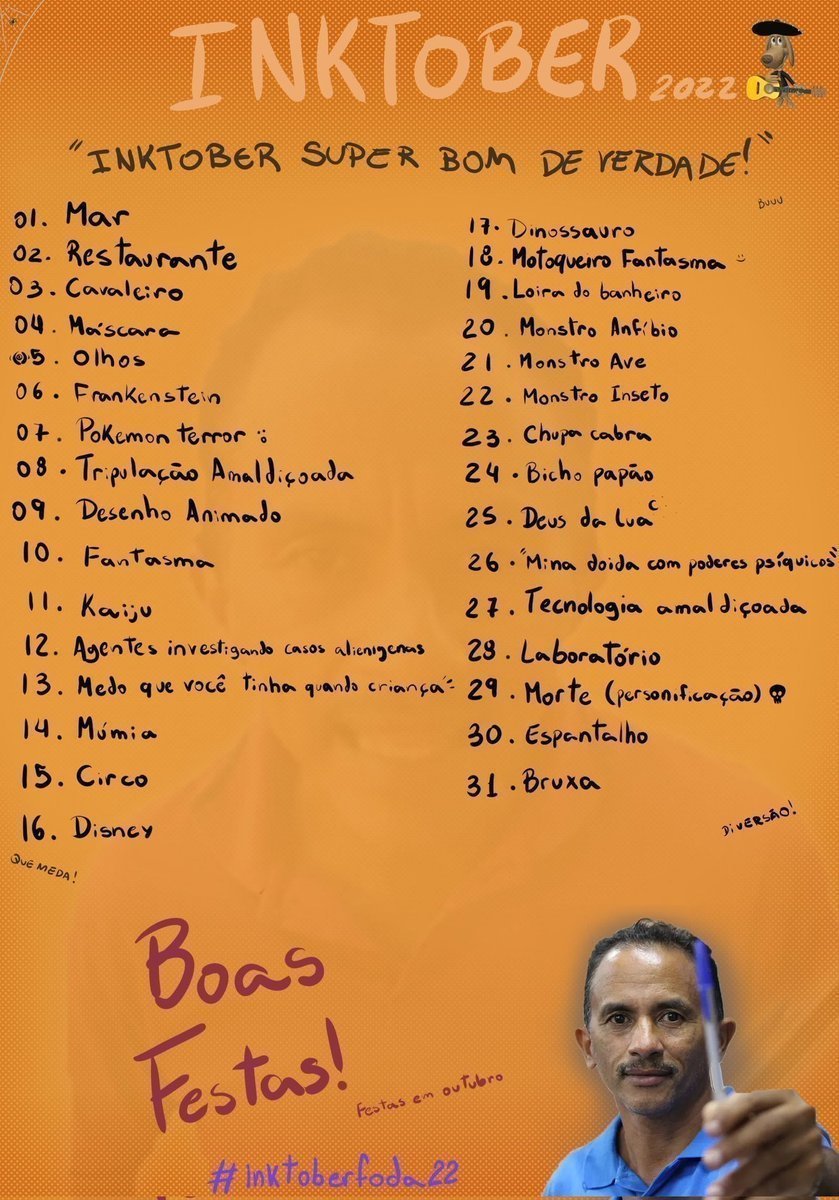 INKTOBER 2022
"INKTOBER SUPER BOM DE VERDADE!"
BUUU
01. Mar
02. Restaurante
03. Cavaleiro
04. Máscara
05. Olhos
06. Frankenstein
07. Pokemon terror :)
08. Tripulação Amaldiçoada
09. Desenho Animado
10. Fantasma
11. Kaiju
12. Agentes investigando casos alienigenas
13. Medo que você tinha quando criança
14. Múmia
15. Circo
16. Disney
QUE MEDA!
17. Dinossauro
18. Motoqueiro Fantasma :)
19. Loira do banheiro
20. Monstro Anfíbio
21. Monstro Ave
22. Monstro Inseto
23. Chupa cabra
24. Bicho papão
25. Deus da lua
26. "Mina doida com poderes psíquicos"
27. Tecnologia amaldiçoada
28. Laboratório
29. Morte (personificação)
30. Espantalho
31. Bruxa
DIVERSÃO!
Boas
Festas!
Festas em outubro
#inktoberfoda22